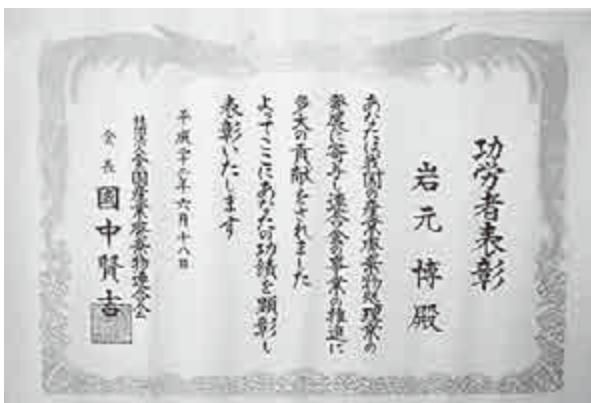 功労者表彰
岩元博殿
あなたは我国の産業廃棄物処理業の
発展に寄与し連合会の事業の推進に
多大の貢献をされました
よってここにあなたの功績を顕彰し
表彰いたします
平成 年六月十八日
社団法人全国産業廃棄物連合会
会長 國中賢吉